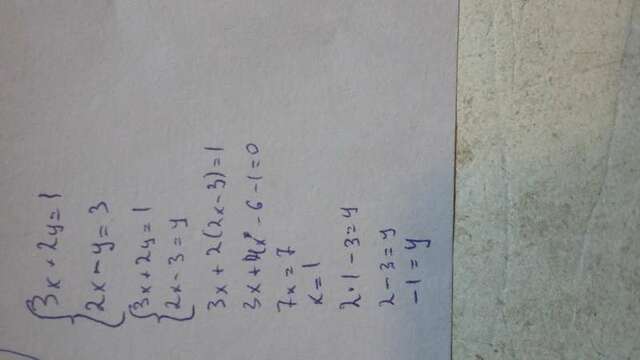 3x + 2y = 1
2x - y = 3
3x + 2y = 1
2x - 3 = y
3x + 2(2x - 3) = 1
3x + 4x - 6 - 1 = 0
7x = 7
x = 1
2 · 1 - 3 = y
2 - 3 = y
-1 = y